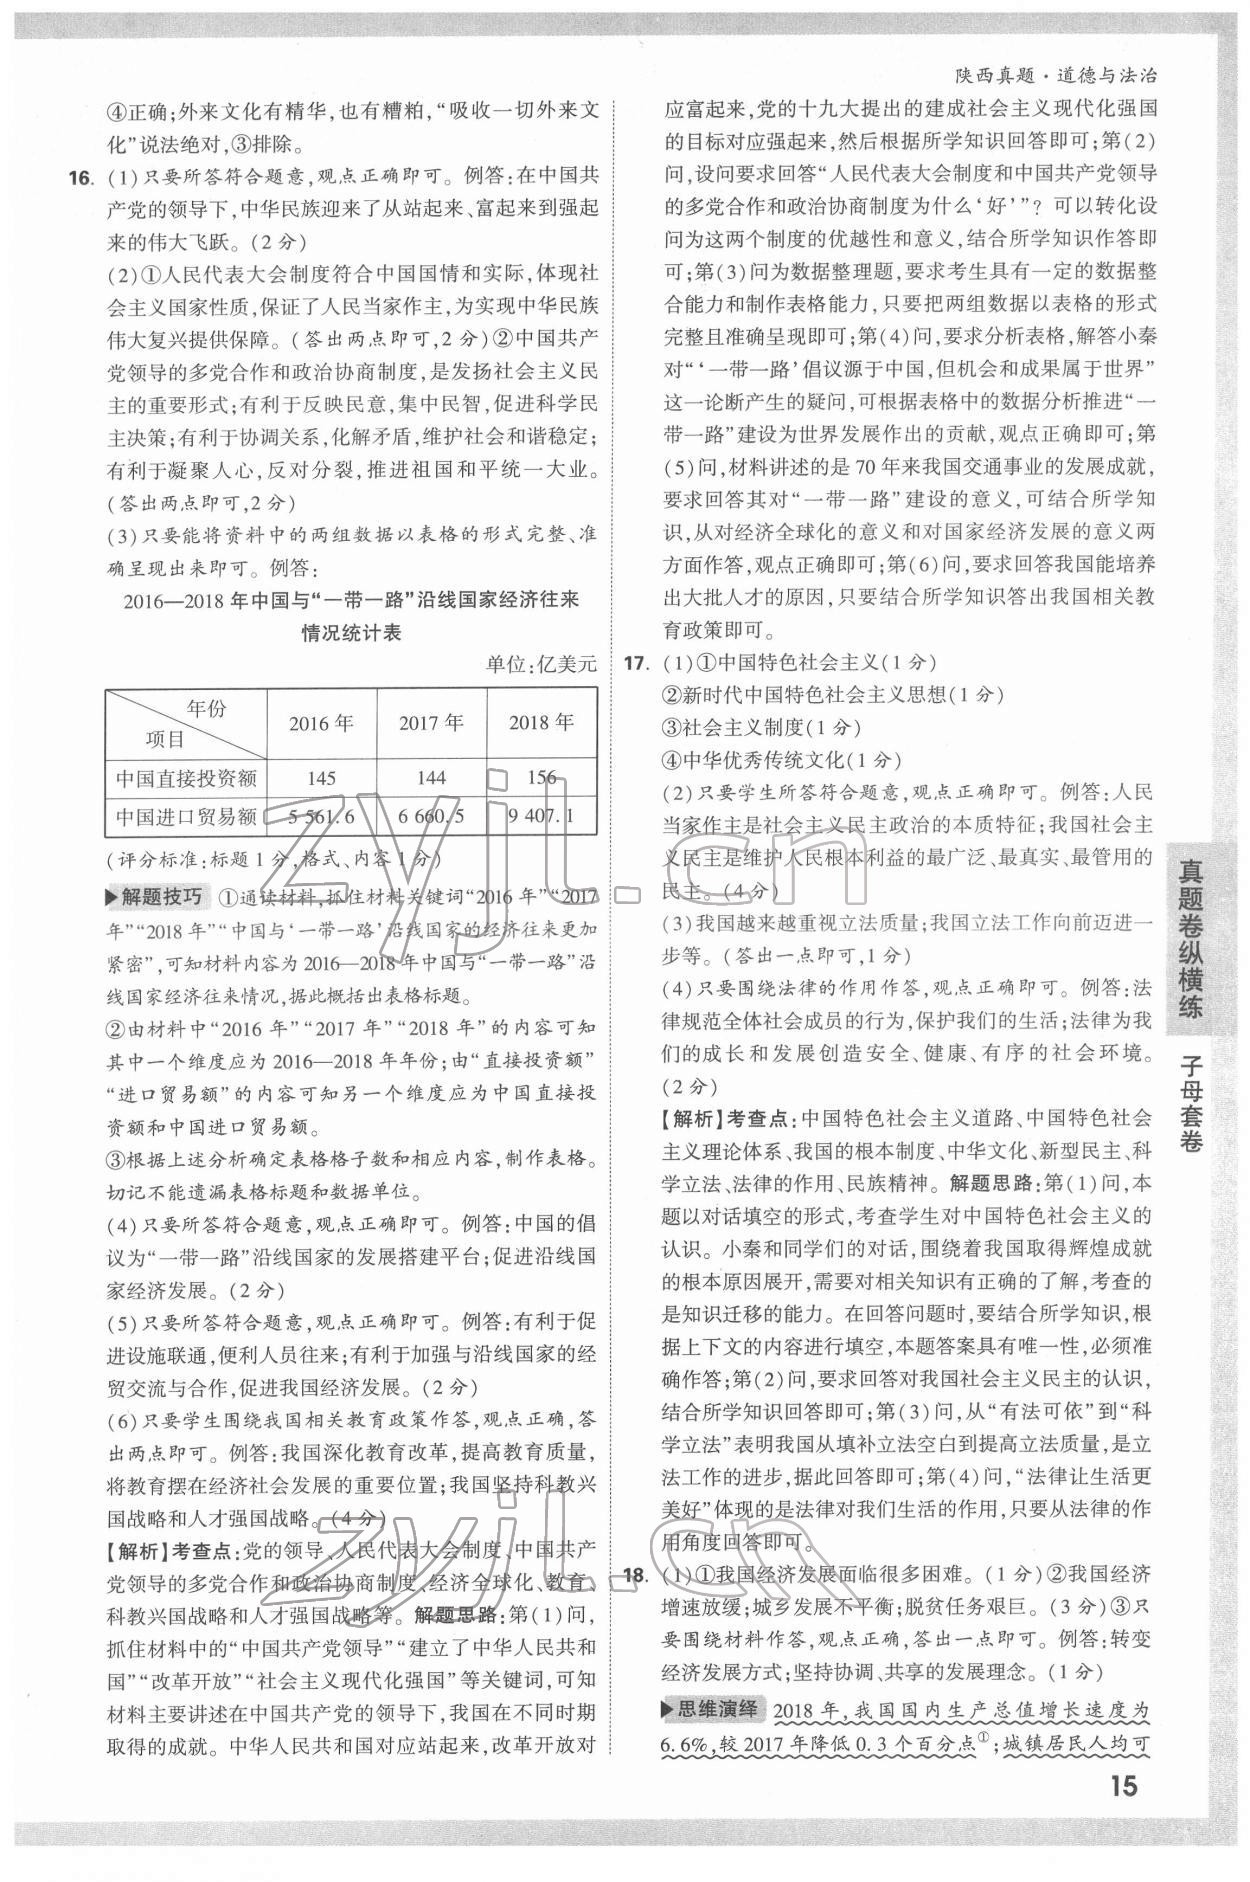 陕西真题·道德与法治
④正确;外来文化有精华,也有糟粕,“吸收一切外来文
化”说法绝对,③排除。
16. (1)只要所答符合题意,观点正确即可。例答:在中国共
产党的领导下,中华民族迎来了从站起来、富起来到强起
来的伟大飞跃。(2分)
(2)①人民代表大会制度符合中国国情和实际,体现社
会主义国家性质,保证了人民当家作主,为实现中华民族
伟大复兴提供保障。(答出两点即可,2分)②中国共产
党领导的多党合作和政治协商制度,是发扬社会主义民
主的重要形式;有利于反映民意,集中民智,促进科学民
主决策;有利于协调关系,化解矛盾,维护社会和谐稳定;
有利于凝聚人心,反对分裂,推进祖国和平统一大业。
(答出两点即可,2分)
(3)只要能将资料中的两组数据以表格的形式完整、准
确呈现出来即可。例答:
2016—2018年中国与“一带一路”沿线国家经济往来
情况统计表
单位:亿美元
年份
项目
2016年 2017年 2018年
中国直接投资额 145 144 156
中国进口贸易额 5 561.6 6 660.5 9 407.1
(评分标准:标题1分,格式、内容1分)
▶解题技巧 ①通读材料,抓住材料关键词“2016年”“2017
年”“2018年”“中国与‘一带一路’沿线国家的经济往来更加
紧密”,可知材料内容为2016—2018年中国与“一带一路”沿
线国家经济往来情况,据此概括出表格标题。
②由材料中“2016年”“2017年”“2018年”的内容可知
其中一个维度应为2016—2018年年份;由“直接投资额”
“进口贸易额”的内容可知另一个维度应为中国直接投
资额和中国进口贸易额。
③根据上述分析确定表格格子数和相应内容,制作表格。
切记不能遗漏表格标题和数据单位。
(4)只要所答符合题意,观点正确即可。例答:中国的倡
议为“一带一路”沿线国家的发展搭建平台;促进沿线国
家经济发展。(2分)
(5)只要所答符合题意,观点正确即可。例答:有利于促
进设施联通,便利人员往来;有利于加强与沿线国家的经
贸交流与合作,促进我国经济发展。(2分)
(6)只要学生围绕我国相关教育政策作答,观点正确,答
出两点即可。例答:我国深化教育改革,提高教育质量,
将教育摆在经济社会发展的重要位置;我国坚持科教兴
国战略和人才强国战略。(4分)
【解析】考查点:党的领导、人民代表大会制度、中国共产
党领导的多党合作和政治协商制度、经济全球化、教育、
科教兴国战略和人才强国战略等。解题思路:第(1)问,
抓住材料中的“中国共产党领导”“建立了中华人民共和
国”“改革开放”“社会主义现代化强国”等关键词,可知
材料主要讲述在中国共产党的领导下,我国在不同时期
取得的成就。中华人民共和国对应站起来,改革开放对
应富起来,党的十九大提出的建成社会主义现代化强国
的目标对应强起来,然后根据所学知识回答即可;第(2)
问,设问要求回答“人民代表大会制度和中国共产党领导
的多党合作和政治协商制度为什么‘好’”?可以转化设
问为这两个制度的优越性和意义,结合所学知识作答即
可;第(3)问为数据整理题,要求考生具有一定的数据整
合能力和制作表格能力,只要把两组数据以表格的形式
完整且准确呈现即可;第(4)问,要求分析表格,解答小秦
对“‘一带一路’倡议源于中国,但机会和成果属于世界”
这一论断产生的疑问,可根据表格中的数据分析推进“一
带一路”建设为世界发展作出的贡献,观点正确即可;第
(5)问,材料讲述的是70年来我国交通事业的发展成就,
要求回答其对“一带一路”建设的意义,可结合所学知
识,从对经济全球化的意义和对国家经济发展的意义两
方面作答,观点正确即可;第(6)问,要求回答我国能培养
出大批人才的原因,只要结合所学知识答出我国相关教
育政策即可。
17. (1)①中国特色社会主义(1分)
②新时代中国特色社会主义思想(1分)
③社会主义制度(1分)
④中华优秀传统文化(1分)
(2)只要学生所答符合题意,观点正确即可。例答:人民
当家作主是社会主义民主政治的本质特征;我国社会主
义民主是维护人民根本利益的最广泛、最真实、最管用的
民主。(4分)
(3)我国越来越重视立法质量;我国立法工作向前迈进一
步等。(答出一点即可,1分)
(4)只要围绕法律的作用作答,观点正确即可。例答:法
律规范全体社会成员的行为,保护我们的生活;法律为我
们的成长和发展创造安全、健康、有序的社会环境。
(2分)
【解析】考查点:中国特色社会主义道路、中国特色社会
主义理论体系、我国的根本制度、中华文化、新型民主、科
学立法、法律的作用、民族精神。解题思路:第(1)问,本
题以对话填空的形式,考查学生对中国特色社会主义的
认识。小秦和同学们的对话,围绕着我国取得辉煌成就
的根本原因展开,需要对相关知识有正确的了解,考查的
是知识迁移的能力。在回答问题时,要结合所学知识,根
据上下文的内容进行填空,本题答案具有唯一性,必须准
确作答;第(2)问,要求回答对我国社会主义民主的认识,
结合所学知识回答即可;第(3)问,从“有法可依”到“科
学立法”表明我国从填补立法空白到提高立法质量,是立
法工作的进步,据此回答即可;第(4)问,“法律让生活更
美好”体现的是法律对我们生活的作用,只要从法律的作
用角度回答即可。
18. (1)①我国经济发展面临很多困难。(1分)②我国经济
增速放缓;城乡发展不平衡;脱贫任务艰巨。(3分)③只
要围绕材料作答,观点正确,答出一点即可。例答:转变
经济发展方式;坚持协调、共享的发展理念。(1分)
▶思维演绎 2018年,我国国内生产总值增长速度为
6.6%,较2017年降低0.3个百分点①;城镇居民人均可
真题卷纵横练 子母套卷
15
zyjl.cn
zyjl.cn